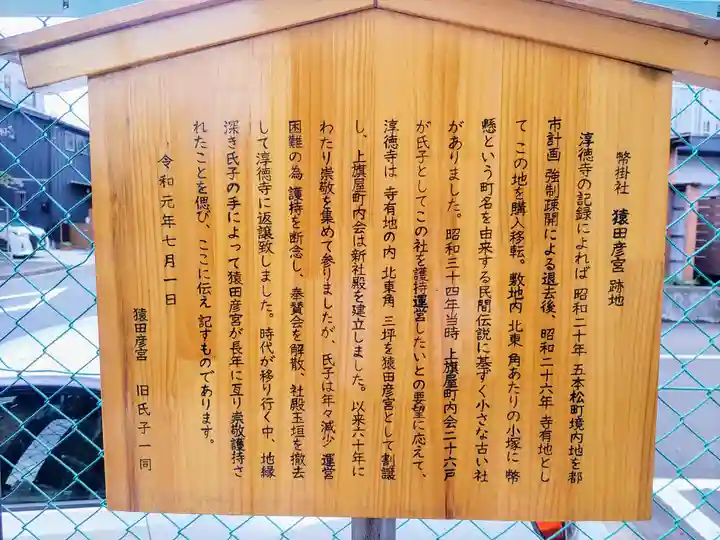 幣掛社 猿田彦宮 跡地
淳徳寺の記録によれば 昭和二十年 五本松町境内地を都
市計画 強制疎開による退去後、昭和二十六年 寺有地とし
て この地を購入移転。敷地内 北東角あたりの小塚に 幣
懸という町名を由来する民間伝説に基ずく小さな古い社
がありました。昭和三十四年当時 上旗屋町内会二十六戸
が氏子としてこの社を護持運営したいとの要望に応えて、
淳徳寺は 寺有地の内 北東角 三坪を猿田彦宮として割譲
し、上旗屋町内会は新社殿を建立しました。以来六十年に
わたり崇敬を集めて参りましたが、氏子は年々減少 運営
困難の為 護持を断念し、奉賛会を解散、社殿玉垣を撤去
して淳徳寺に返譲致しました。時代が移り行く中、地縁
深き氏子の手によって猿田彦宮が長年に亙り崇敬護持さ
れたことを偲び、ここに伝え 記すものであります。
令和元年七月一日
猿田彦宮 旧氏子一同